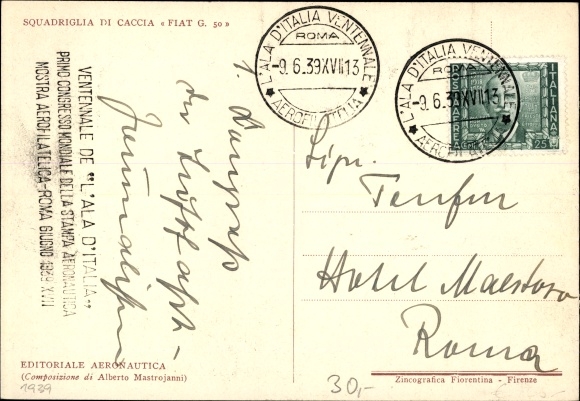 SQUADRIGLIA DI CACCIA « FIAT G. 50 »
L'ALA D'ITALIA VENTENNALE
ROMA
-9.6.39XVII13
AEROFILATELIA
L'ALA D'ITALIA VENTENNALE
ROMA
-9.6.39XVII13
POSTA AEREA
ITALIANE
25
VENTENNALE DE "L'ALA D'ITALIA"
PRIMO CONGRESSO MONDIALE DELLA STAMPA AERONAUTICA
MOSTRA AEROFILATELICA - ROMA GIUGNO 1939 XVII
1.
der Luftfahrt-
Journalisten
Sign.
Hotel Maestoso
Roma
EDITORIALE AERONAUTICA
(Composizione di Alberto Mastrojanni)
1939
30,-
Zincografica Fiorentina - Firenze